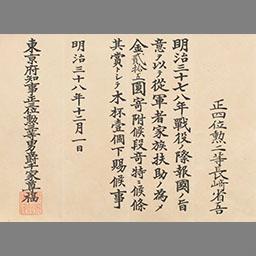 正四位勲二等長崎省吾
明治三十七八年戦役ノ際報國ノ旨
意ヲ以テ從軍者家族扶助ノ為メ
金貳拾五圓寄附候段奇特ニ候條
其賞トシテ木杯壹個下賜候事
明治三十八年十二月一日
東京府知事正四位勲三等男爵千家尊福